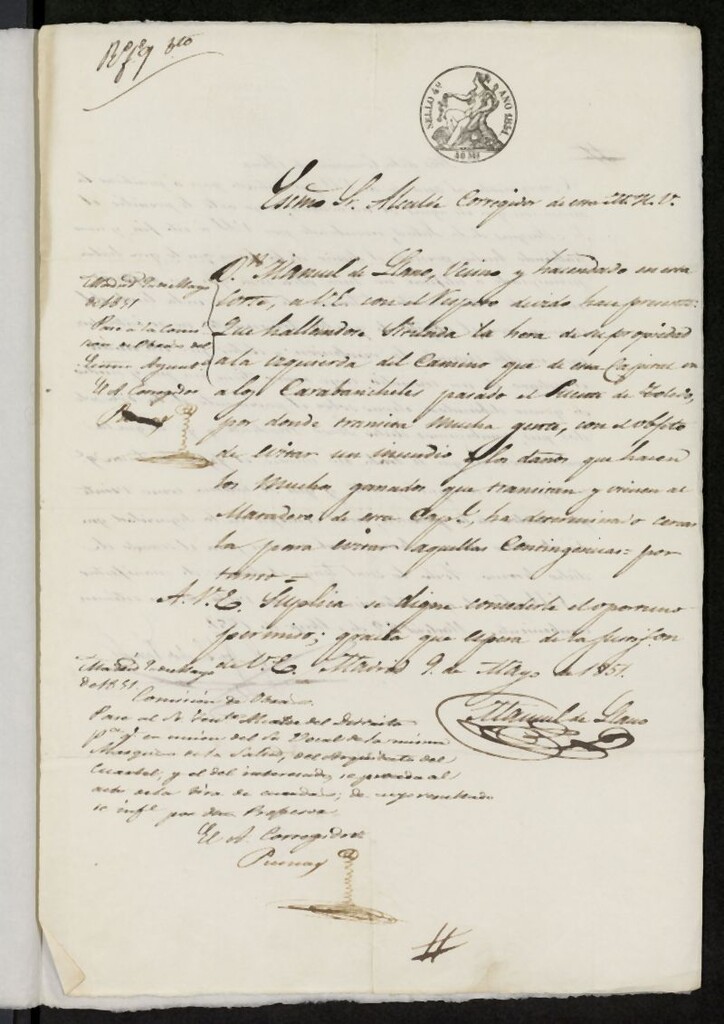 SELLO 4º AÑO 1851
40 Ms
Escmo Sr. Alcalde Corregidor de esta M. H. V.
Dn Manuel de Llano, Vecino y hacendado en esta
Corte, a V.E. con el respeto devido hace presente:
Que hallandose situada la hera de su propiedad
a la izquierda del Camino que de esta Capital va
a los Carabancheles pasado el Puente de Toledo,
por donde transita mucha gente, con el objeto
de evitar un incendio y los daños que hacen
los muchos ganados que transitan y vienen al
Matadero de esta Capl, ha determinado cercar
la para evitar aquellas Contingencias = por
tanto =
A. V.E. Suplica se digne concederle el oportuno
permiso; gracia que espera de la
de V.E. Madrid 9 de Mayo de 1851.
Manuel de Llano
Madrid 9 de Mayo
de 1851
Pase a la Comi
sion de Obras del
Escmo Ayunto
El A. Corregidor
Madrid 9 de Mayo
de 1851.
Comision de Obras
Pase al Sr Tente Alcalde del Distrito
pa qe en union del Sr Vocal de la misma
Marques de la Salud, del Arquitecto del
Cuartel, y el del interesado, se proceda al
acto de la tira de cuerdas; de cuyo resultado
se infe por dhos Profesores
El A. Corregidor